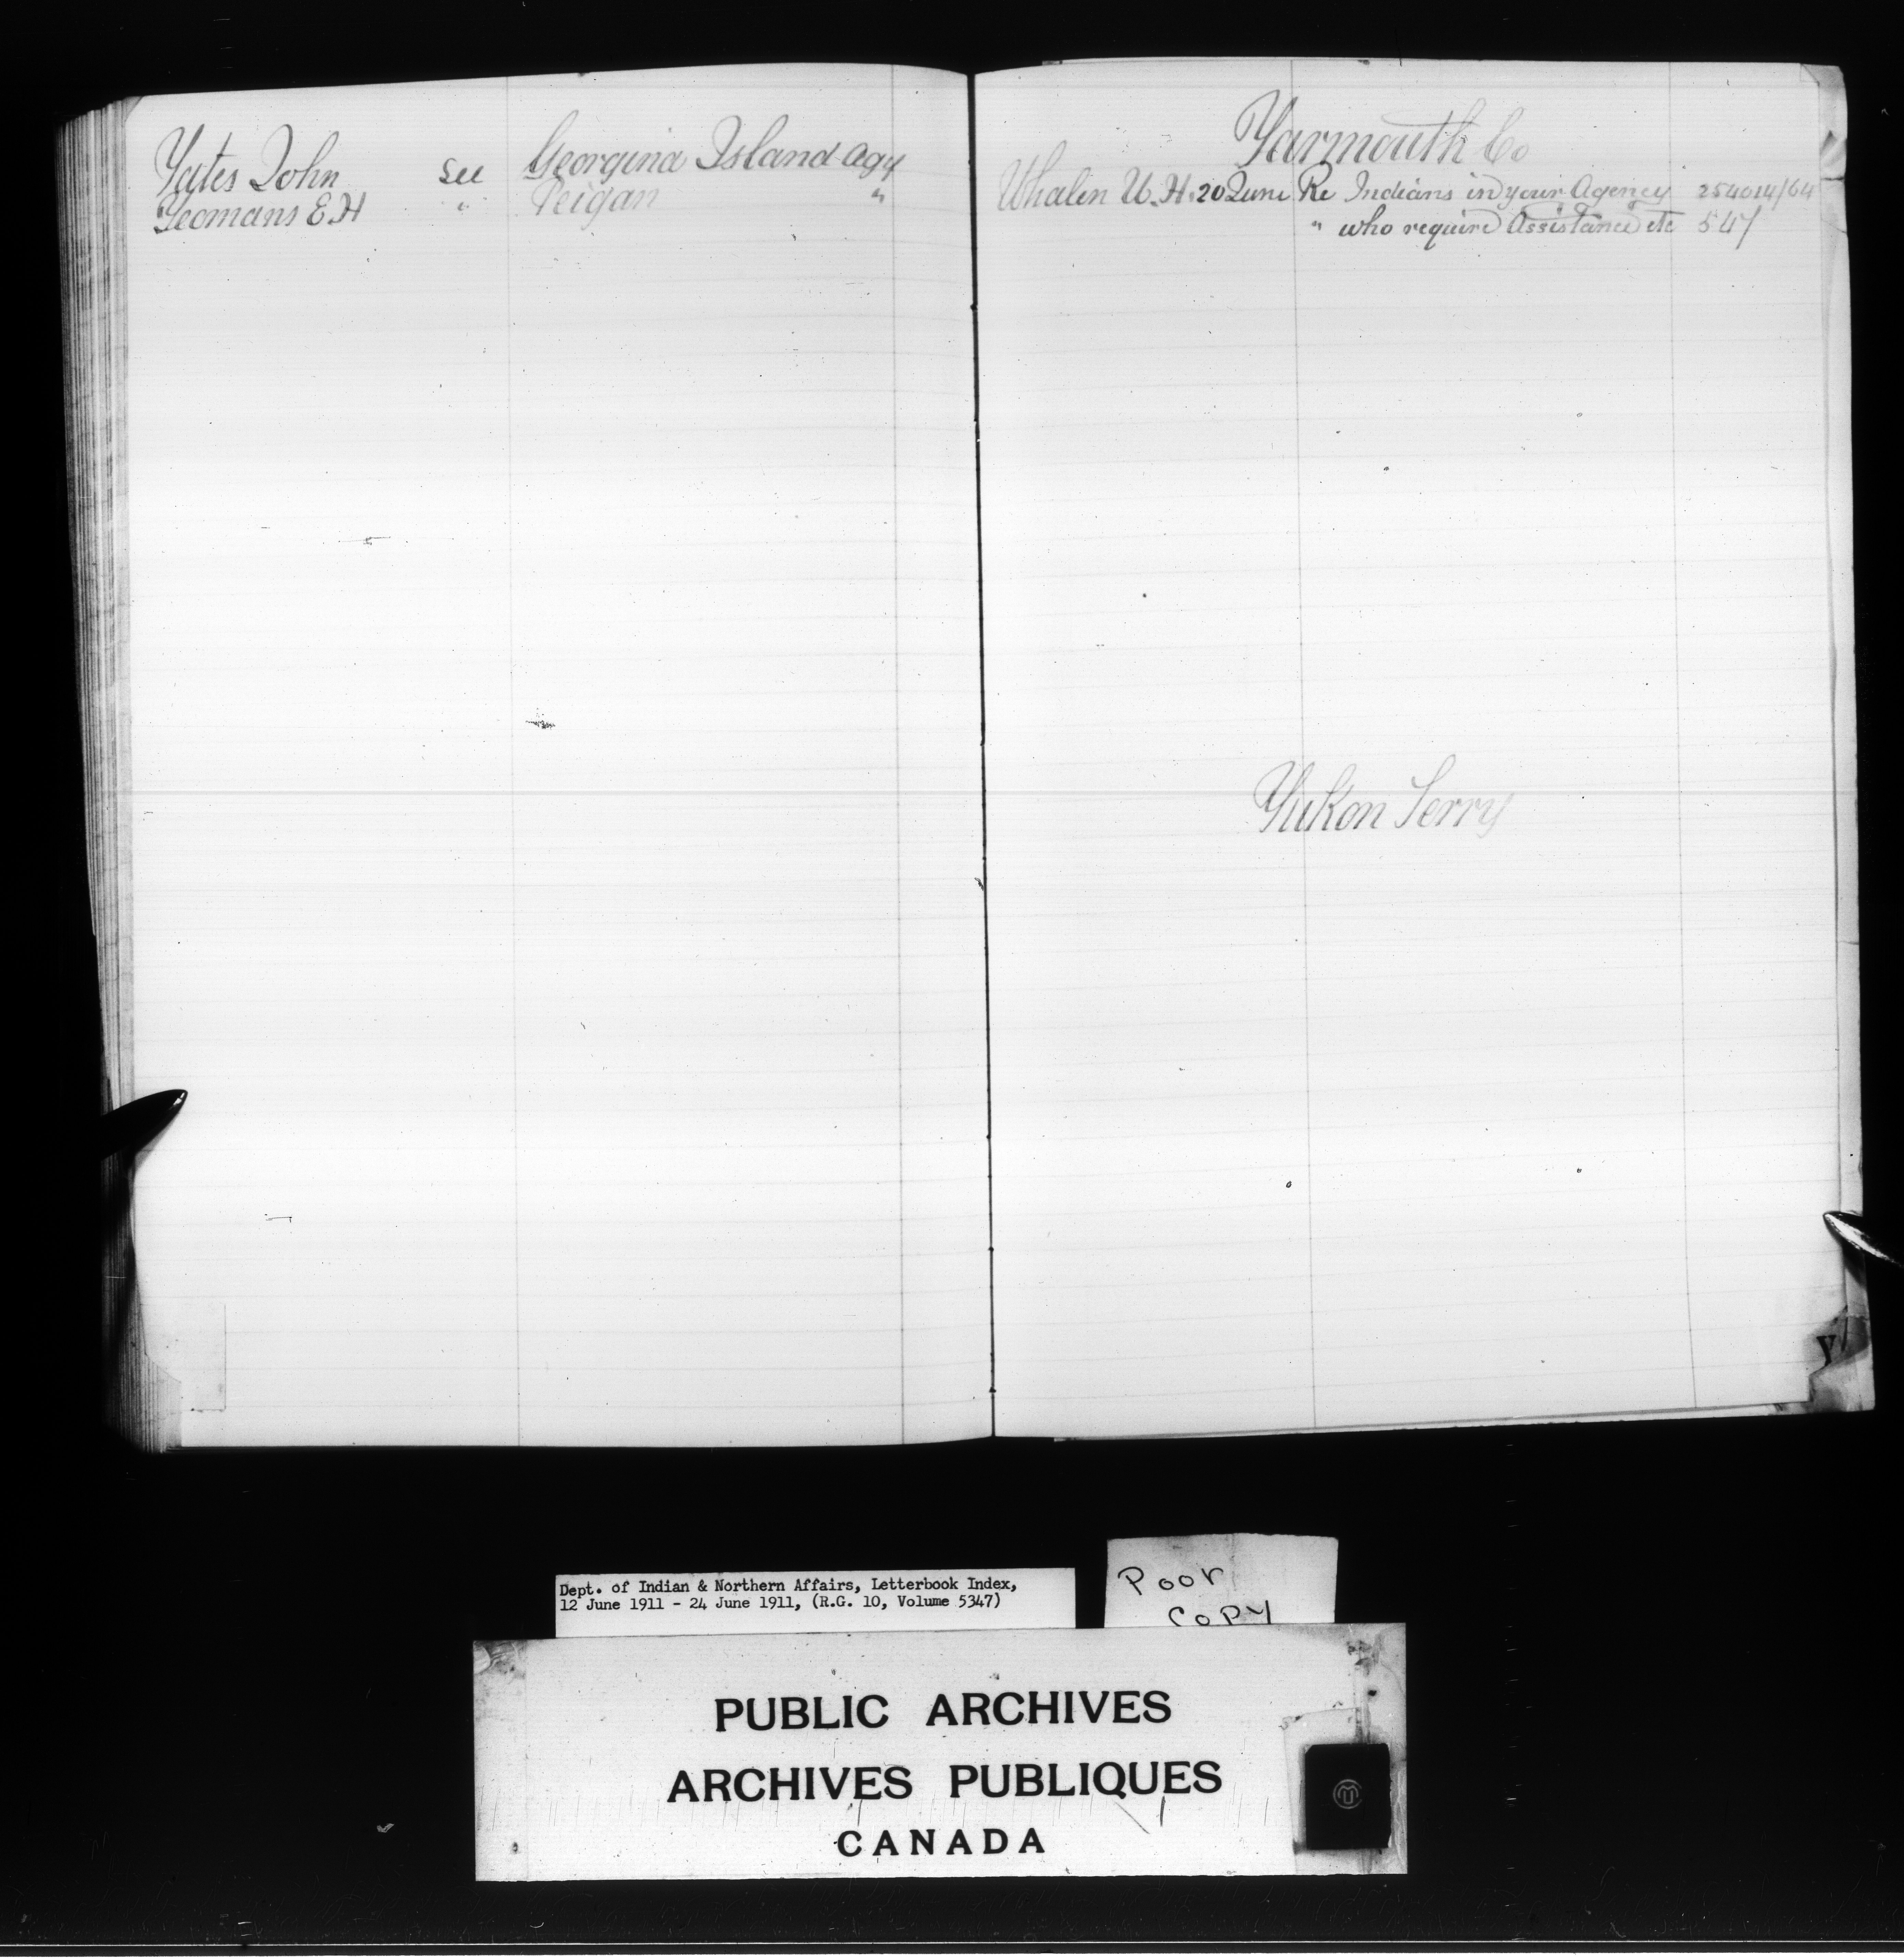 Yates John see Georgina Island Agy
Yeomans E.H " Peigan "
Yarmouth Co
Whalen W.H. 20 June Re Indians in your Agency 254014/64
" who require Assistance etc 547
Yukon Terry
Y
Dept. of Indian & Northern Affairs, Letterbook Index,
12 June 1911 - 24 June 1911, (R.G. 10, Volume 5347)
Poor
Copy
PUBLIC ARCHIVES
ARCHIVES PUBLIQUES
CANADA